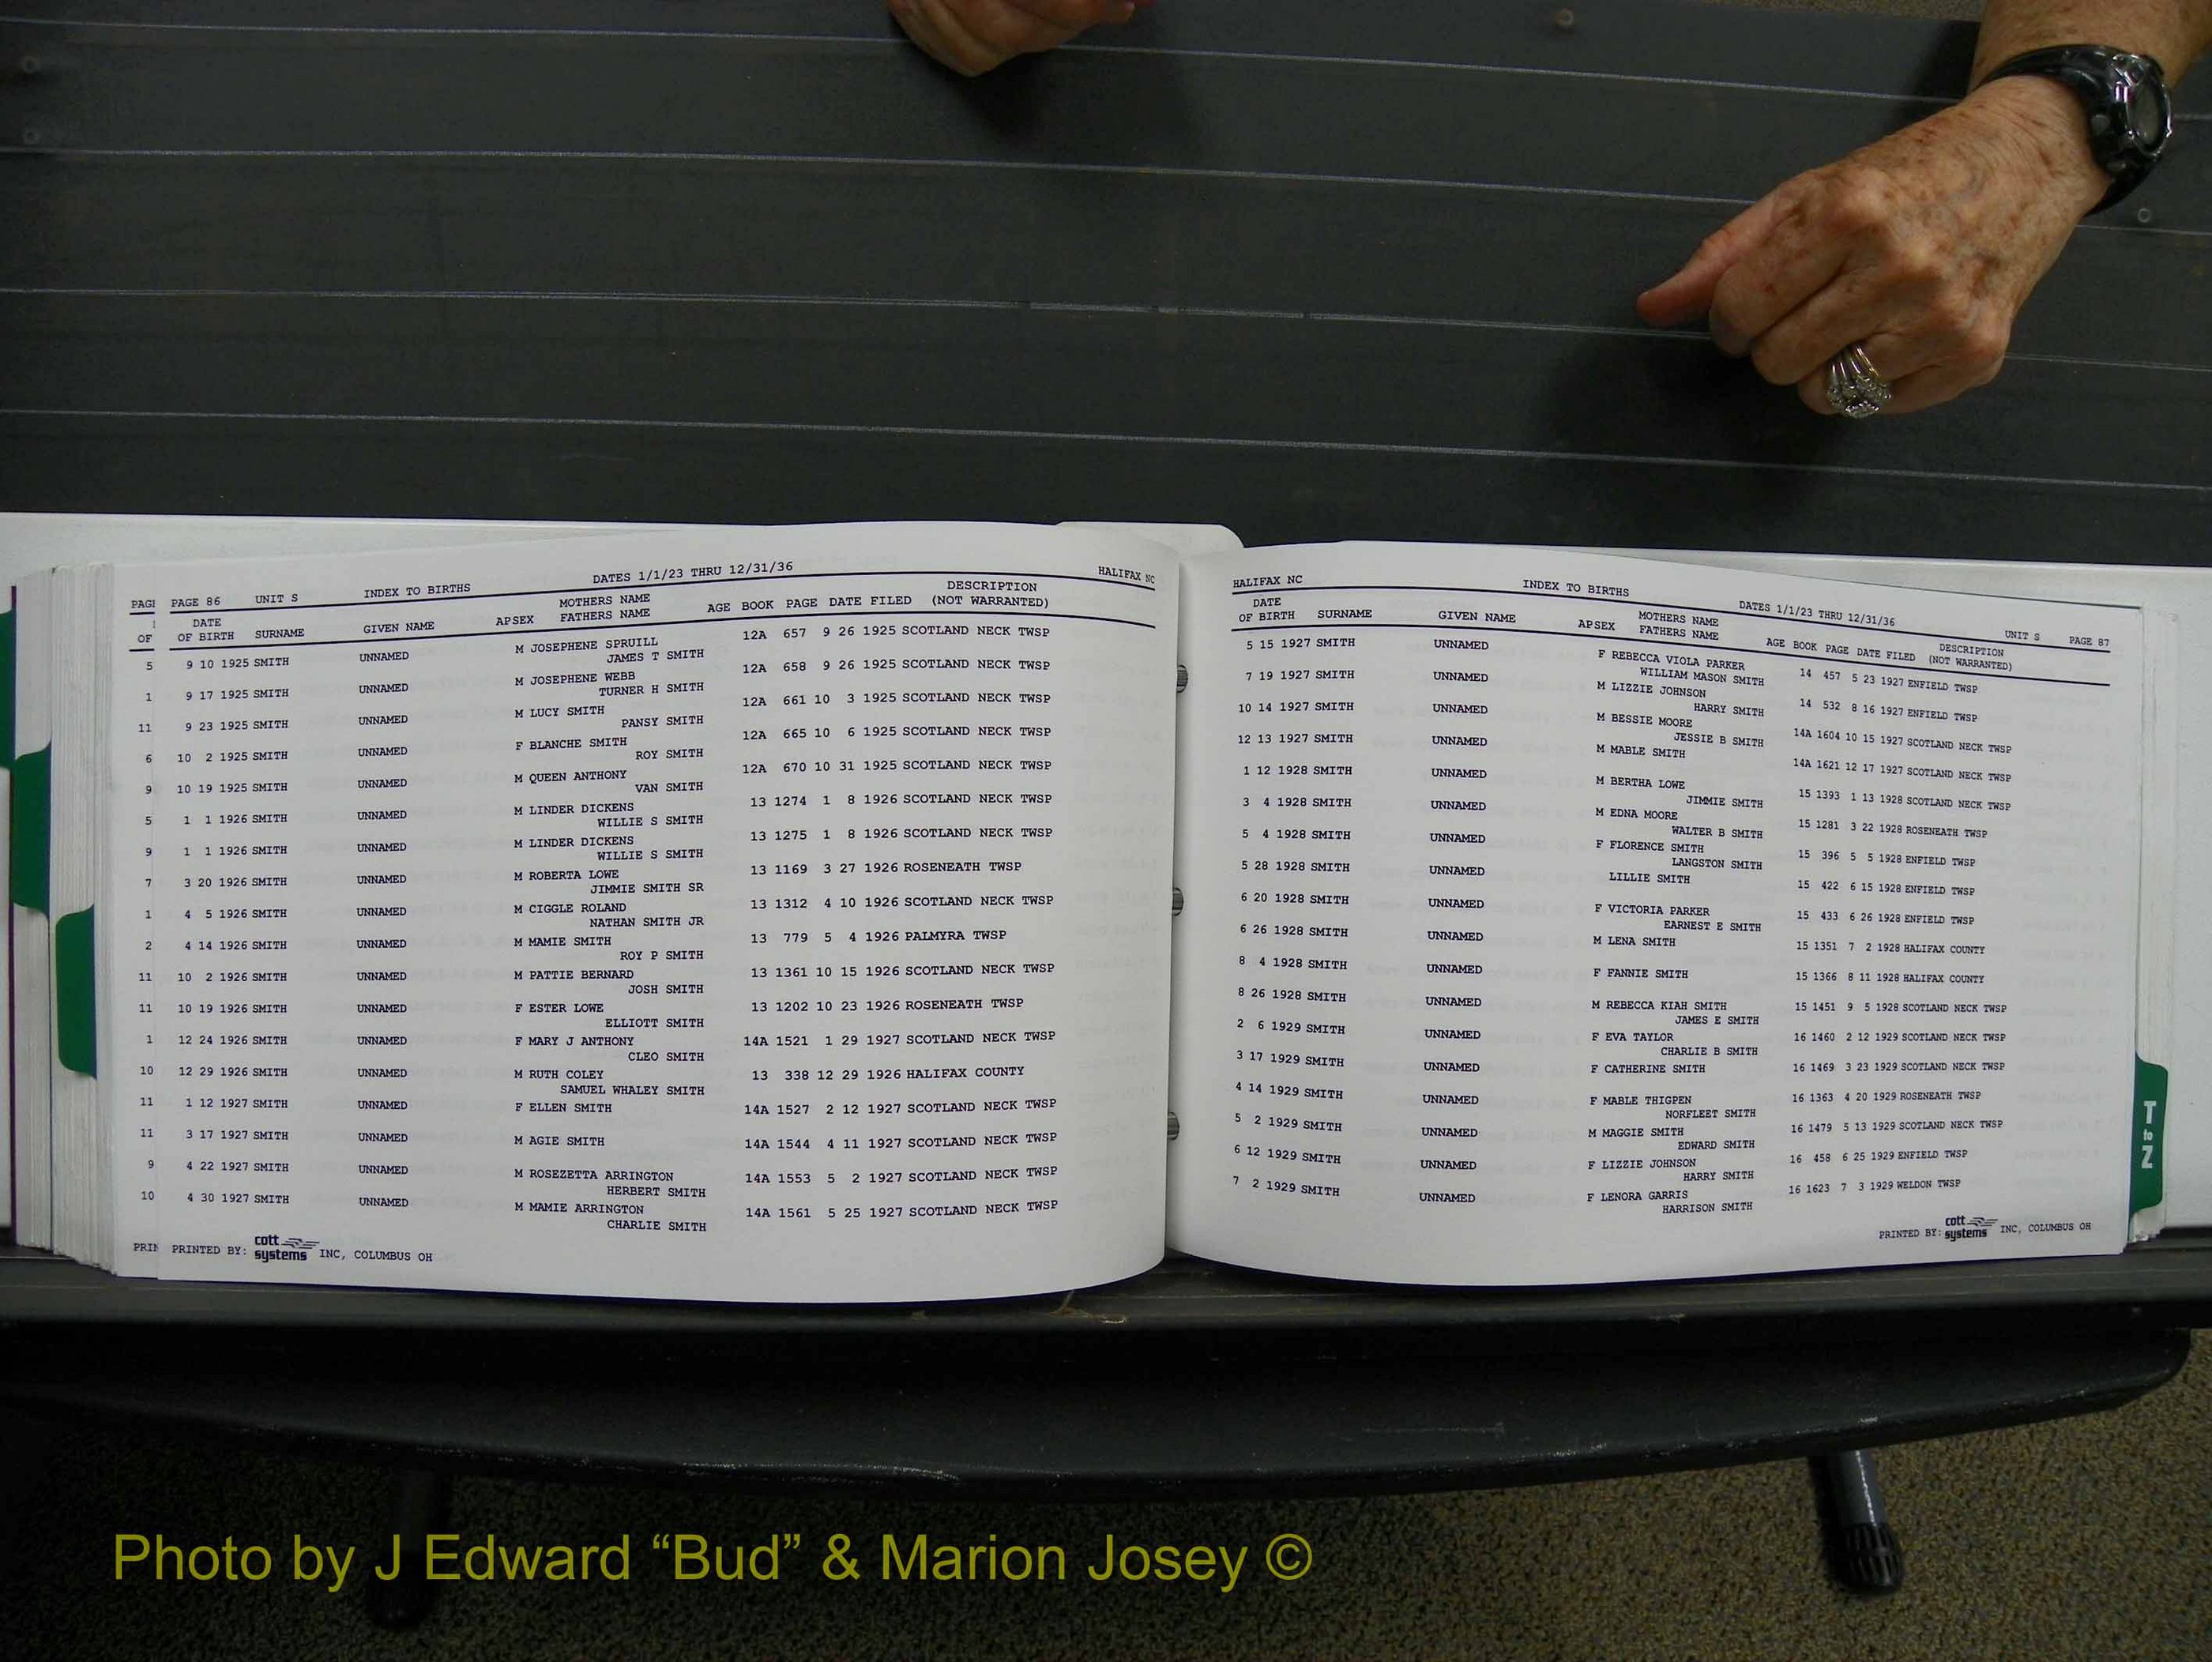 PAGE 86 UNIT S INDEX TO BIRTHS DATES 1/1/23 THRU 12/31/36 HALIFAX NC
DATE MOTHERS NAME DESCRIPTION
OF BIRTH SURNAME GIVEN NAME APSEX FATHERS NAME AGE BOOK PAGE DATE FILED (NOT WARRANTED)
9 10 1925 SMITH UNNAMED M JOSEPHENE SPRUILL 12A 657 9 26 1925 SCOTLAND NECK TWSP
JAMES T SMITH
9 17 1925 SMITH UNNAMED M JOSEPHENE WEBB 12A 658 9 26 1925 SCOTLAND NECK TWSP
TURNER H SMITH
9 23 1925 SMITH UNNAMED M LUCY SMITH 12A 661 10 3 1925 SCOTLAND NECK TWSP
PANSY SMITH
10 2 1925 SMITH UNNAMED F BLANCHE SMITH 12A 665 10 6 1925 SCOTLAND NECK TWSP
ROY SMITH
10 19 1925 SMITH UNNAMED M QUEEN ANTHONY 12A 670 10 31 1925 SCOTLAND NECK TWSP
VAN SMITH
1 1 1926 SMITH UNNAMED M LINDER DICKENS 13 1274 1 8 1926 SCOTLAND NECK TWSP
WILLIE S SMITH
1 1 1926 SMITH UNNAMED M LINDER DICKENS 13 1275 1 8 1926 SCOTLAND NECK TWSP
WILLIE S SMITH
3 20 1926 SMITH UNNAMED M ROBERTA LOWE 13 1169 3 27 1926 ROSENEATH TWSP
JIMMIE SMITH SR
4 5 1926 SMITH UNNAMED M CIGGLE ROLAND 13 1312 4 10 1926 SCOTLAND NECK TWSP
NATHAN SMITH JR
4 14 1926 SMITH UNNAMED M MAMIE SMITH 13 779 5 4 1926 PALMYRA TWSP
ROY P SMITH
10 2 1926 SMITH UNNAMED M PATTIE BERNARD 13 1361 10 15 1926 SCOTLAND NECK TWSP
JOSH SMITH
10 19 1926 SMITH UNNAMED F ESTER LOWE 13 1202 10 23 1926 ROSENEATH TWSP
ELLIOTT SMITH
12 24 1926 SMITH UNNAMED F MARY J ANTHONY 14A 1521 1 29 1927 SCOTLAND NECK TWSP
CLEO SMITH
12 29 1926 SMITH UNNAMED M RUTH COLEY 13 338 12 29 1926 HALIFAX COUNTY
SAMUEL WHALEY SMITH
1 12 1927 SMITH UNNAMED F ELLEN SMITH 14A 1527 2 12 1927 SCOTLAND NECK TWSP
3 17 1927 SMITH UNNAMED M AGIE SMITH 14A 1544 4 11 1927 SCOTLAND NECK TWSP
4 22 1927 SMITH UNNAMED M ROSEZETTA ARRINGTON 14A 1553 5 2 1927 SCOTLAND NECK TWSP
HERBERT SMITH
4 30 1927 SMITH UNNAMED M MAMIE ARRINGTON 14A 1561 5 25 1927 SCOTLAND NECK TWSP
CHARLIE SMITH
PRINTED BY: cott systems INC, COLUMBUS OH
PAGI
OF
5
1
11
6
9
5
9
7
1
2
11
11
1
10
11
11
9
10
HALIFAX NC INDEX TO BIRTHS DATES 1/1/23 THRU 12/31/36 UNIT S PAGE 87
DATE MOTHERS NAME DESCRIPTION
OF BIRTH SURNAME GIVEN NAME APSEX FATHERS NAME AGE BOOK PAGE DATE FILED (NOT WARRANTED)
5 15 1927 SMITH UNNAMED F REBECCA VIOLA PARKER 14 457 5 23 1927 ENFIELD TWSP
WILLIAM MASON SMITH
7 19 1927 SMITH UNNAMED M LIZZIE JOHNSON 14 532 8 16 1927 ENFIELD TWSP
HARRY SMITH
10 14 1927 SMITH UNNAMED M BESSIE MOORE 14A 1604 10 15 1927 SCOTLAND NECK TWSP
JESSIE B SMITH
12 13 1927 SMITH UNNAMED M MABLE SMITH 14A 1621 12 17 1927 SCOTLAND NECK TWSP
1 12 1928 SMITH UNNAMED M BERTHA LOWE 15 1393 1 13 1928 SCOTLAND NECK TWSP
JIMMIE SMITH
3 4 1928 SMITH UNNAMED M EDNA MOORE 15 1281 3 22 1928 ROSENEATH TWSP
WALTER B SMITH
5 4 1928 SMITH UNNAMED F FLORENCE SMITH 15 396 5 5 1928 ENFIELD TWSP
LANGSTON SMITH
5 28 1928 SMITH UNNAMED LILLIE SMITH 15 422 6 15 1928 ENFIELD TWSP
6 20 1928 SMITH UNNAMED F VICTORIA PARKER 15 433 6 26 1928 ENFIELD TWSP
EARNEST E SMITH
6 26 1928 SMITH UNNAMED M LENA SMITH 15 1351 7 2 1928 HALIFAX COUNTY
8 4 1928 SMITH UNNAMED F FANNIE SMITH 15 1366 8 11 1928 HALIFAX COUNTY
8 26 1928 SMITH UNNAMED M REBECCA KIAH SMITH 15 1451 9 5 1928 SCOTLAND NECK TWSP
JAMES E SMITH
2 6 1929 SMITH UNNAMED F EVA TAYLOR 16 1460 2 12 1929 SCOTLAND NECK TWSP
CHARLIE B SMITH
3 17 1929 SMITH UNNAMED F CATHERINE SMITH 16 1469 3 23 1929 SCOTLAND NECK TWSP
4 14 1929 SMITH UNNAMED F MABLE THIGPEN 16 1363 4 20 1929 ROSENEATH TWSP
NORFLEET SMITH
5 2 1929 SMITH UNNAMED M MAGGIE SMITH 16 1479 5 13 1929 SCOTLAND NECK TWSP
EDWARD SMITH
6 12 1929 SMITH UNNAMED F LIZZIE JOHNSON 16 458 6 25 1929 ENFIELD TWSP
HARRY SMITH
7 2 1929 SMITH UNNAMED F LENORA GARRIS 16 1623 7 3 1929 WELDON TWSP
HARRISON SMITH
PRINTED BY: cott systems INC, COLUMBUS OH
T to Z
Photo by J Edward “Bud” & Marion Josey ©